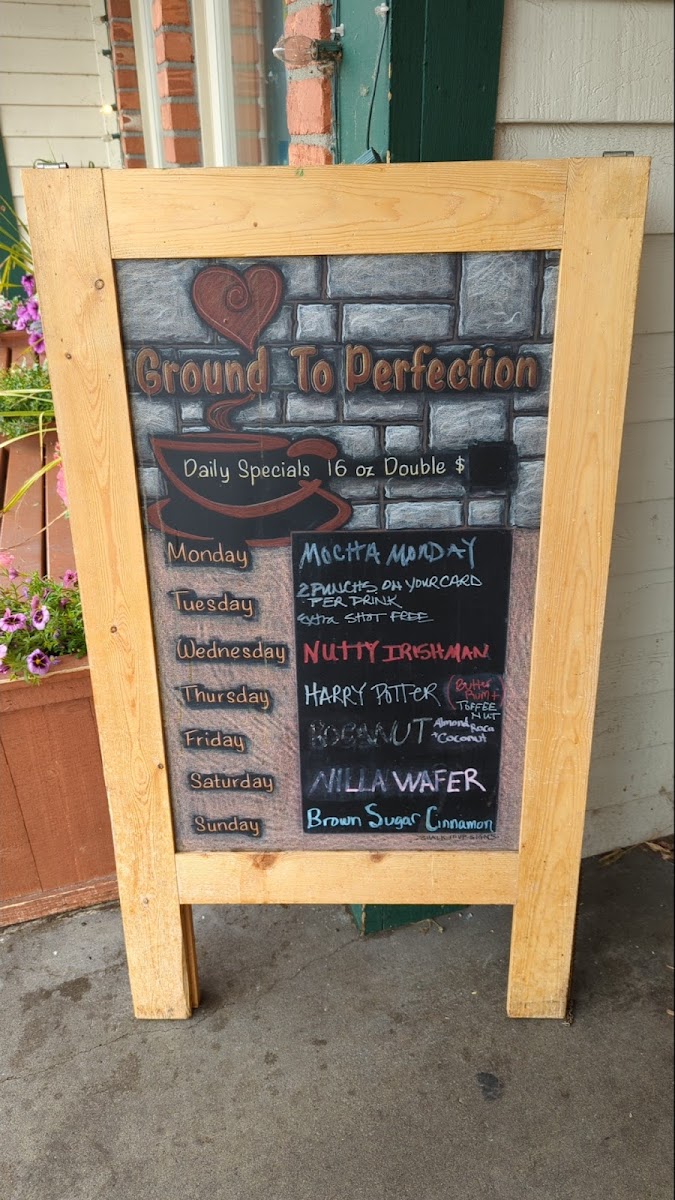 Ground To Perfection
Daily Specials 16 oz Double $
Monday MOCHA MONDAY
Tuesday 2 PUNCHS ON YOUR CARD
PER DRINK
extra SHOT FREE
Wednesday NUTTY IRISHMAN
Thursday HARRY POTTER (Butter
Rum +
TOFFEE
NUT
Friday ROCANUT Almond Roca
+Coconut
Saturday NILLA WAFER
Sunday Brown Sugar Cinnamon